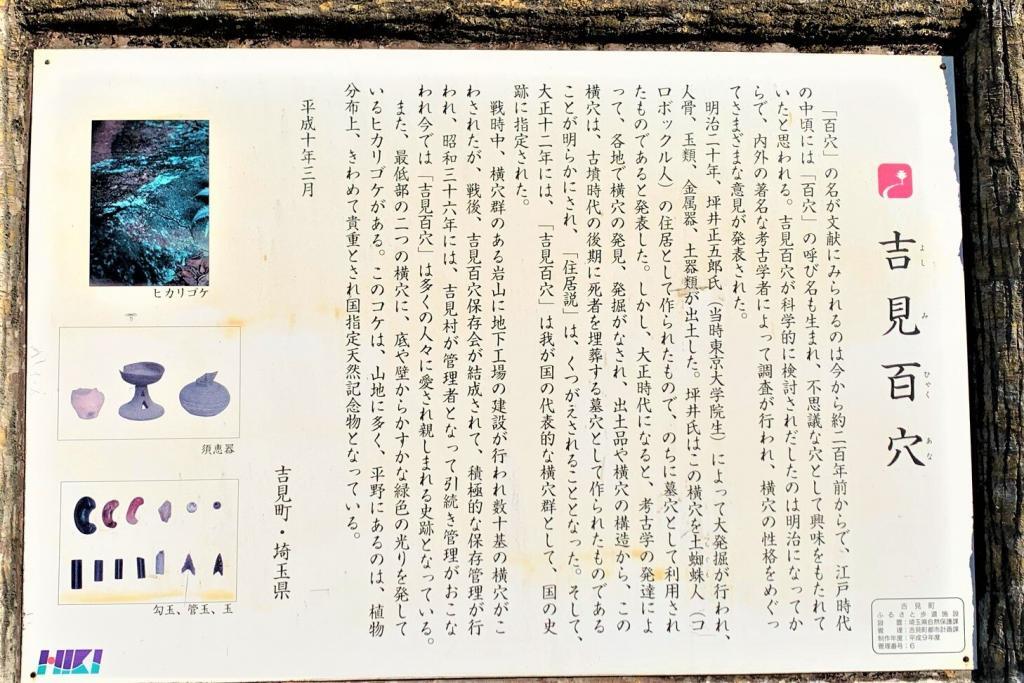 吉見百穴
よし み ひゃく あな
「百穴」の名が文献にみられるのは今から約二百年前からで、江戸時代
の中頃には「百穴」の呼び名も生まれ、不思議な穴として興味をもたれて
いたと思われる。吉見百穴が科学的に検討されだしたのは明治になってか
らで、内外の著名な考古学者によって調査が行われ、横穴の性格をめぐっ
てさまざまな意見が発表された。
明治二十年、坪井正五郎氏（当時東京大学院生）によって大発掘が行われ、
人骨、玉類、金属器、土器類が出土した。坪井氏はこの横穴を土蜘蛛人（コ
ロボックル人）の住居として作られたもので、のちに墓穴として利用され
たものであると発表した。しかし、大正時代になると、考古学の発達によ
って、各地で横穴の発見、発掘がなされ、出土品や横穴の構造から、この
横穴は、古墳時代の後期に死者を埋葬する墓穴として作られたものである
ことが明らかにされ、「住居説」は、くつがえされることとなった。そして、
大正十二年には、「吉見百穴」は我が国の代表的な横穴群として、国の史
跡に指定された。
戦時中、横穴群のある岩山に地下工場の建設が行われ数十基の横穴がこ
わされたが、戦後、吉見百穴保存会が結成されて、積極的な保存管理が行
われ、昭和三十六年には、吉見村が管理者となって引続き管理がおこな
われ今では「吉見百穴」は多くの人々に愛され親しまれる史跡となっている。
また、最低部の二つの横穴に、底や壁からかすかな緑色の光りを発して
いるヒカリゴケがある。このコケは、山地に多く、平野にあるのは、植物
分布上、きわめて貴重とされ国指定天然記念物となっている。
平成十年三月
吉見町・埼玉県
ヒカリゴケ
須恵器
勾玉、管玉、玉
HIKI
吉見町
ふるさと歩道施設
設置：埼玉県自然保護課
管理：吉見町都市計画課
制作年度：平成9年度
管理番号：6